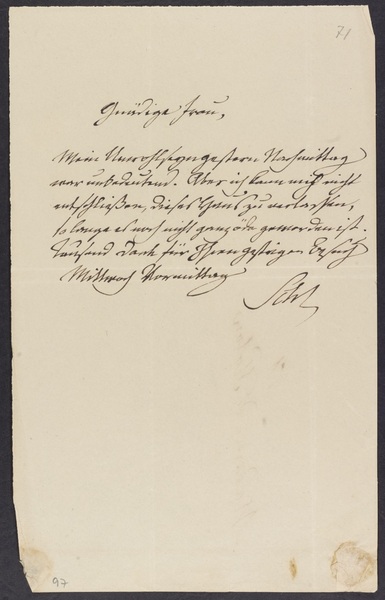 71
Gnädige Frau,
Mein Unwohlseyn gestern Nachmittag
war unbedeutend. Aber ich kann mich nicht
entschließen, dieses Haus zu verlassen,
so lange es noch nicht ganz öde geworden ist.
Tausend Dank für Ihren gestrigen Besuch
Mittwoch Vormittag
Schl
97